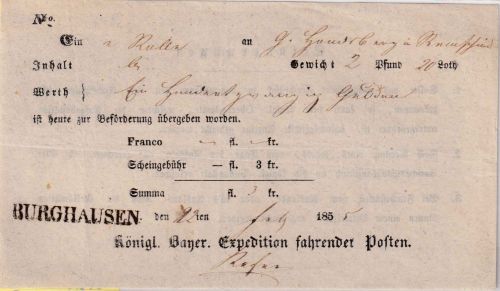 No.
Ein Rolle an G. Hendsberg in Remscheid
Inhalt Gewicht 2 Pfund 20 Loth
Werth Ein Hundert zwanzig Gulden
ist heute zur Beförderung übergeben worden.
Franco — fl. — kr.
Scheingebühr — fl. 3 kr.
Summa fl. 3 kr.
BURGHAUSEN den 12ten July 185
Königl. Bayer. Expedition fahrender Posten.